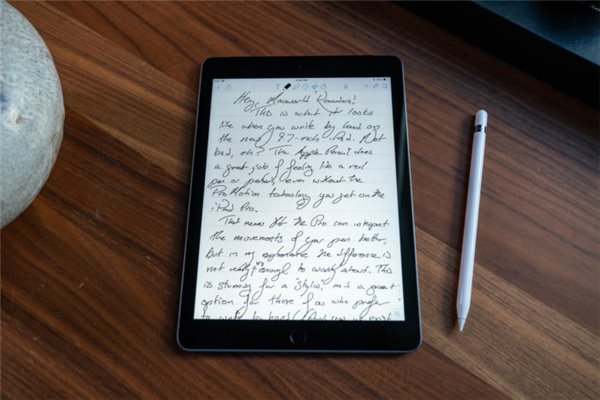 Hey, Macworld Readers!
This is what it looks
like when you write by hand on
the new 9.7-inch iPad. Not
bad, eh? The Apple Pencil does
a great job of feeling like a real
pen or pencil, even without the
ProMotion technology you get on the
iPad Pro.
This means that the Pro can interpret
the movements of your pen better,
but in my experience, the difference is
not really enough to worry about. This
is stunning for a "stylus," and a great
option for those of us who prefer
to write by hand.